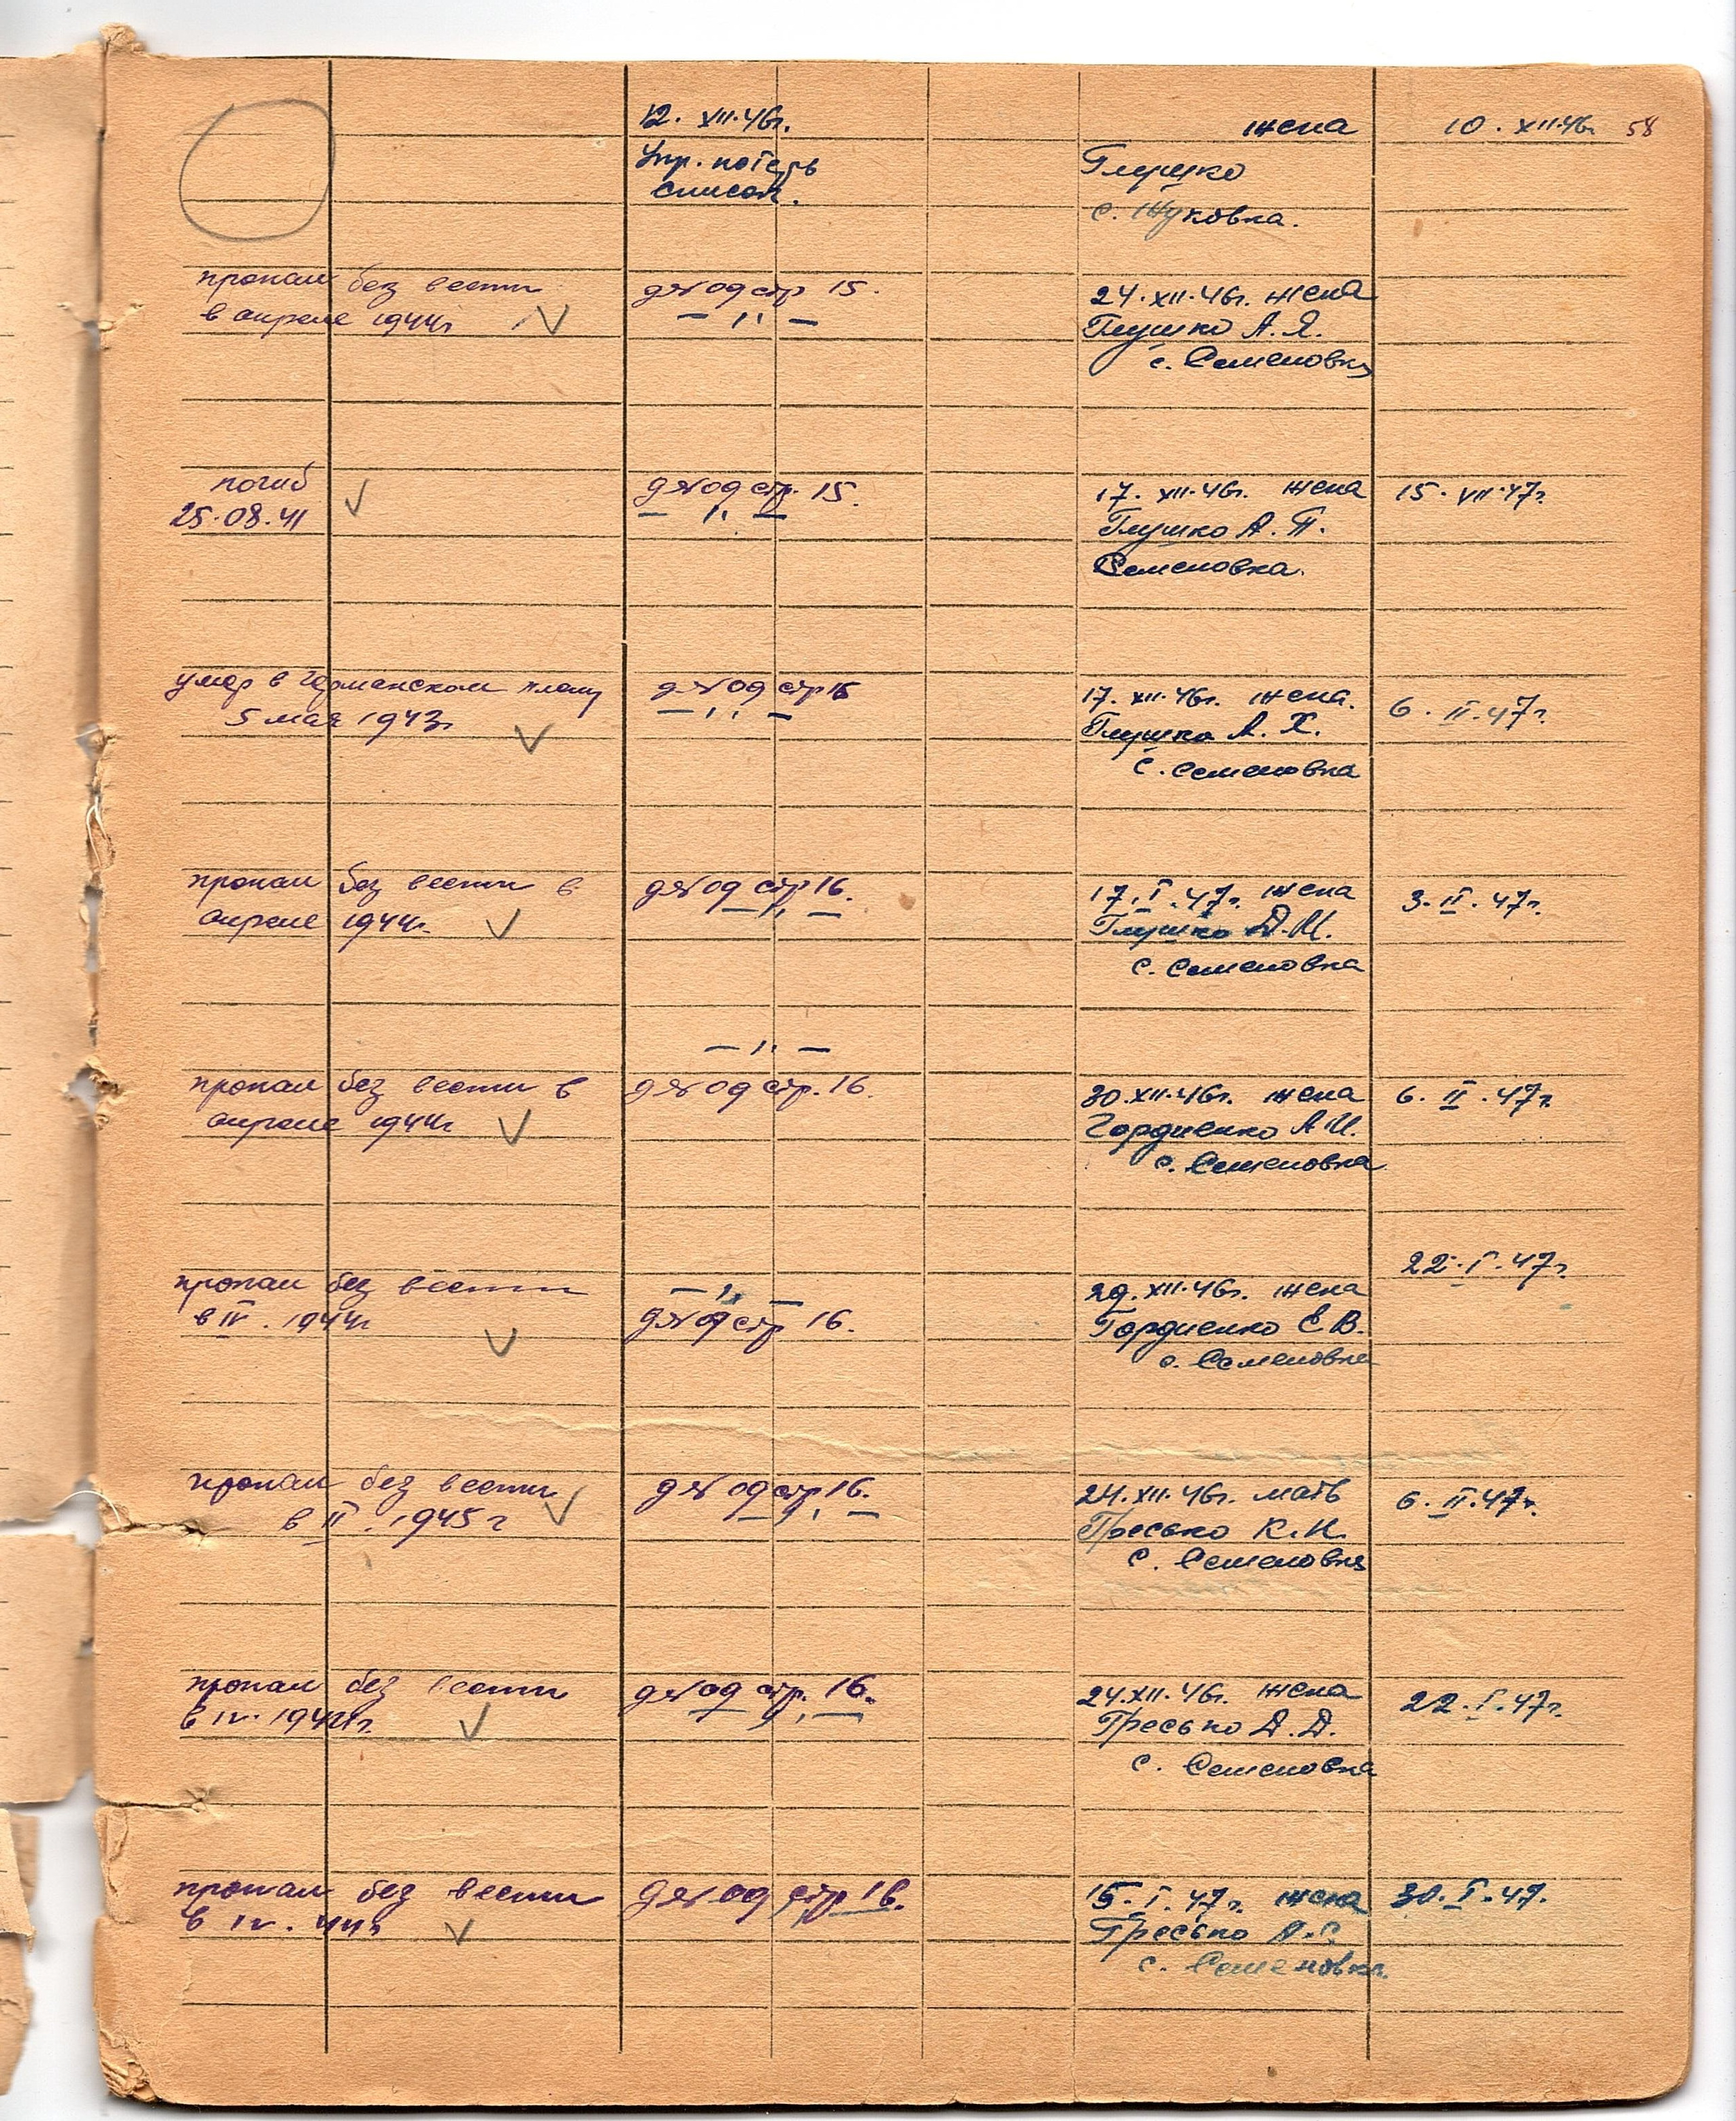 12. XII.46г.
жена
10. XII.46г. 58
Упр. потерь
список.
Глушко
с. Жуковка.
пропал без вести
в апреле 1944г
д №09 стр 15.
— " —
24. XII.46г. жена
Глушко А. Я.
с. Семеновка
погиб
25.08.41
д №09 стр. 15.
— " —
17. XII.46г. жена
Глушко А. П.
Семеновка.
15. VII.47г.
умер в Германском плену
5 мая 1943г
д №09 стр 15
— " —
17. XII.46г. жена.
Глушко А. Х.
с. Семеновка
6. II.47г.
пропал без вести в
апреле 1944г.
д №09 стр 16.
— " —
17. I. 47г. жена
Глушко Д.И.
с. Семеновка
3. II. 47г.
— " —
пропал без вести в
апреле 1944г
д №09 стр. 16.
30.XII.46г. жена
Гордиенко А И.
с. Семеновка
6. II. 47г.
22. I. 47г.
пропал без вести
в IV. 1944г
— " —
д №09 стр 16.
29. XII.46г. жена
Гордиенко Е В.
с. Семеновка
пропал без вести
в II. 1945 г
д №09 стр 16.
— " —
24.XII.46г. мать
Гресько К.И.
с. Семеновка
6. II.47г.
пропал без вести
в IV. 1944г.
д №09 стр. 16.
— " —
24.XII.46г. жена
Гресько Д.Д.
с. Семеновка
22. I. 47г.
пропал без вести
в IV. 44г
д №09 стр 16.
15. I. 47г. жена
Гресько А.С.
с. Семеновка.
30. I. 47.